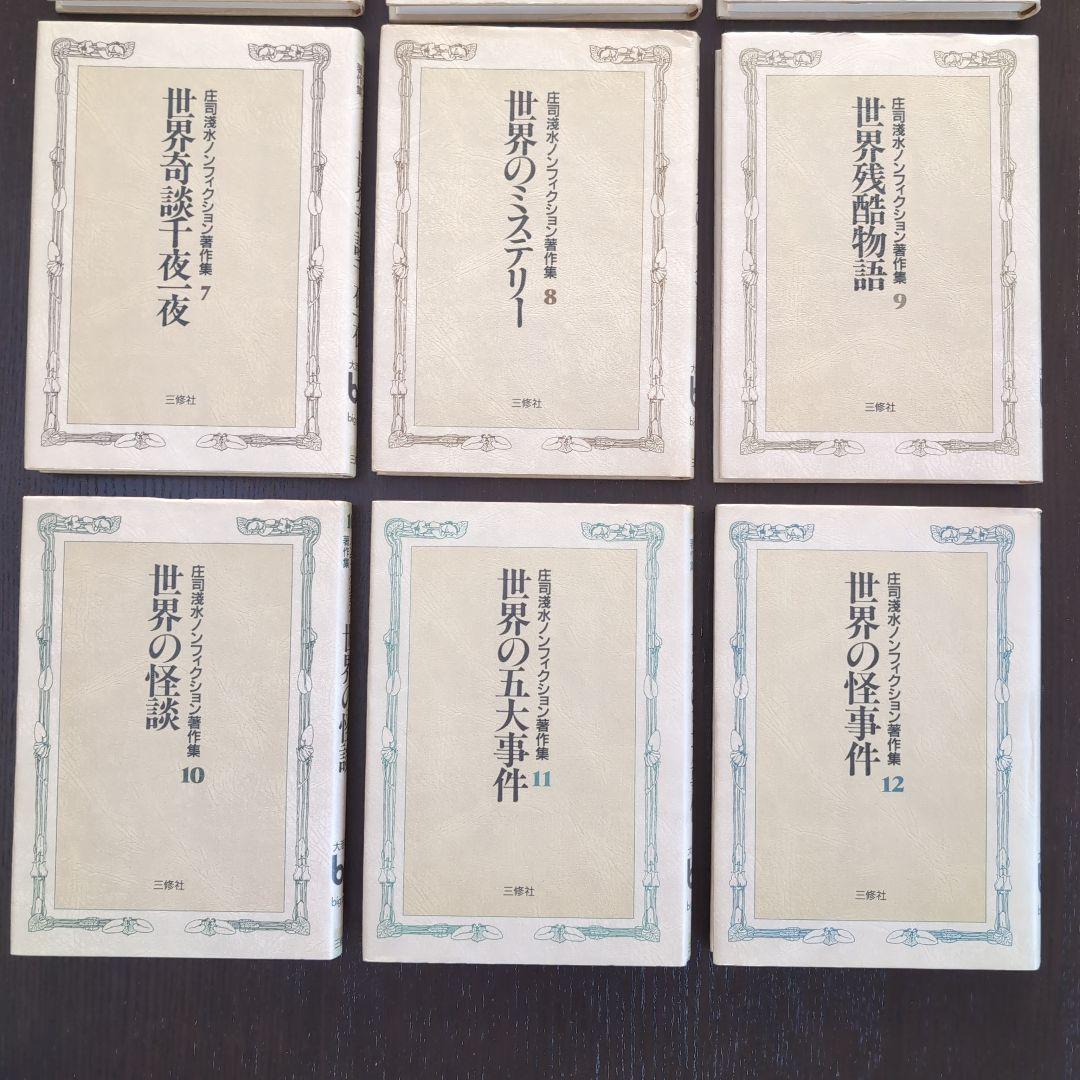 庄司淺水ノンフィクション著作集 7
世界奇談千夜一夜
三修社
庄司淺水ノンフィクション著作集 8
世界のミステリー
三修社
庄司淺水ノンフィクション著作集 9
世界残酷物語
三修社
庄司淺水ノンフィクション著作集 10
世界の怪談
三修社
著作集
世界の怪談
庄司淺水ノンフィクション著作集 11
世界の五大事件
三修社
庄司淺水ノンフィクション著作集 12
世界の怪事件
三修社